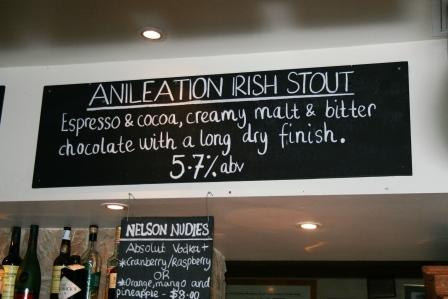 ANILEATION IRISH STOUT
Espresso & cocoa, creamy malt & bitter
chocolate with a long dry finish.
5.7% abv
NELSON NUDIES
Absolut Vodka +
*Cranberry/Raspberry
OR
*Orange, mango and
pineapple - $8.00